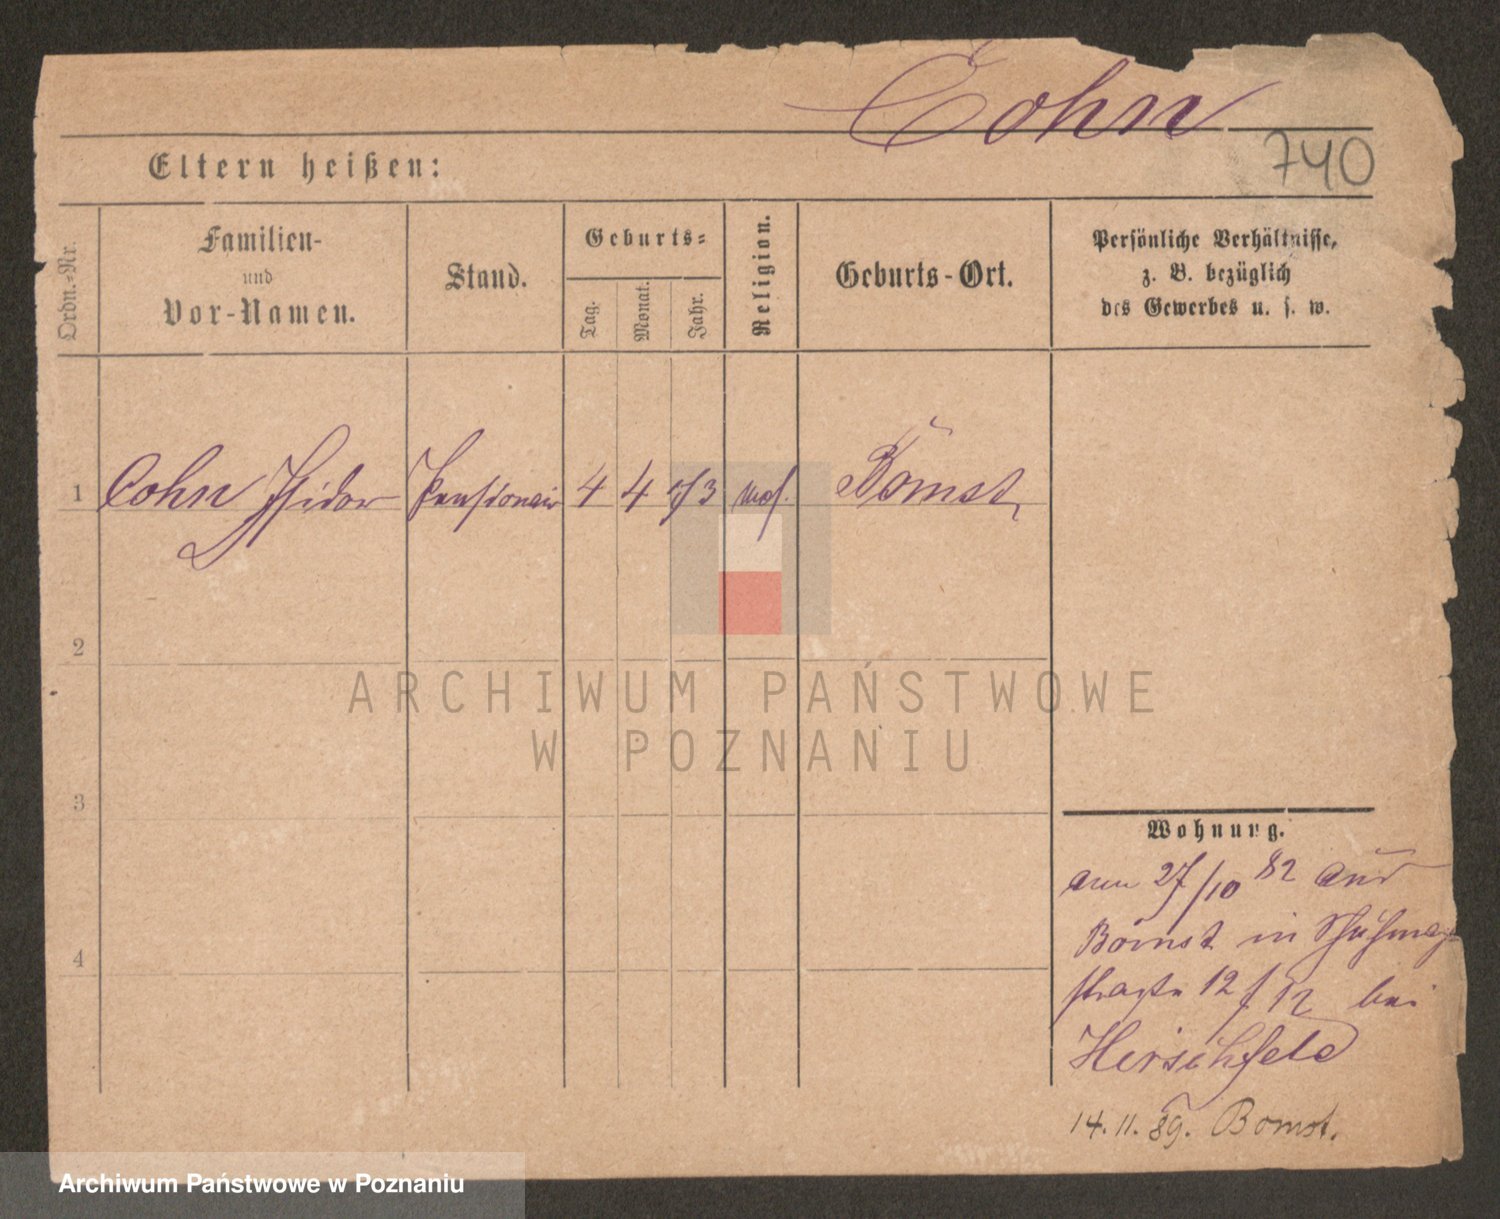 Cohn
740
Eltern heißen:
Ordn.-Nr.
Familien-
und
Vor-Namen.
Stand.
Geburts-
Tag.
Monat.
Jahr.
Religion.
Geburts-Ort.
Persönliche Verhältnisse,
z. B. bezüglich
des Gewerbes u. s. w.
1 Cohn Isidor Pensionair 4 4 73 mos. Bomst
2
3
4
Wohnung.
27/10 82 aus
Bomst in
straße 12 bei
Hirschfeld
14. 11. 89. Bomst.
ARCHIWUM PAŃSTWOWE
W POZNANIU
Archiwum Państwowe w Poznaniu